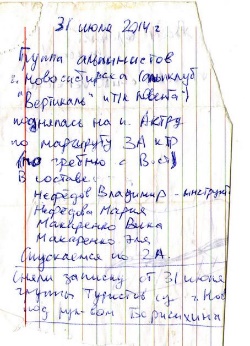 31 июля 2014 г.
Группа альпинистов
г. Новосибирска (альпклуб
"Вертикаль" и т/к
поднялась на п. Актру
по маршруту 3А к тр
(по гребню с В.ст)
В составе:
Нефёдов Владимир - инструкт
Нефёдова Мария
Макаренко Вика
Макаренко Эля
Спускаемся по 2А.
Сняли записку от 31 июля
группы туристов из г. Нов
под рук-вом Борисихина